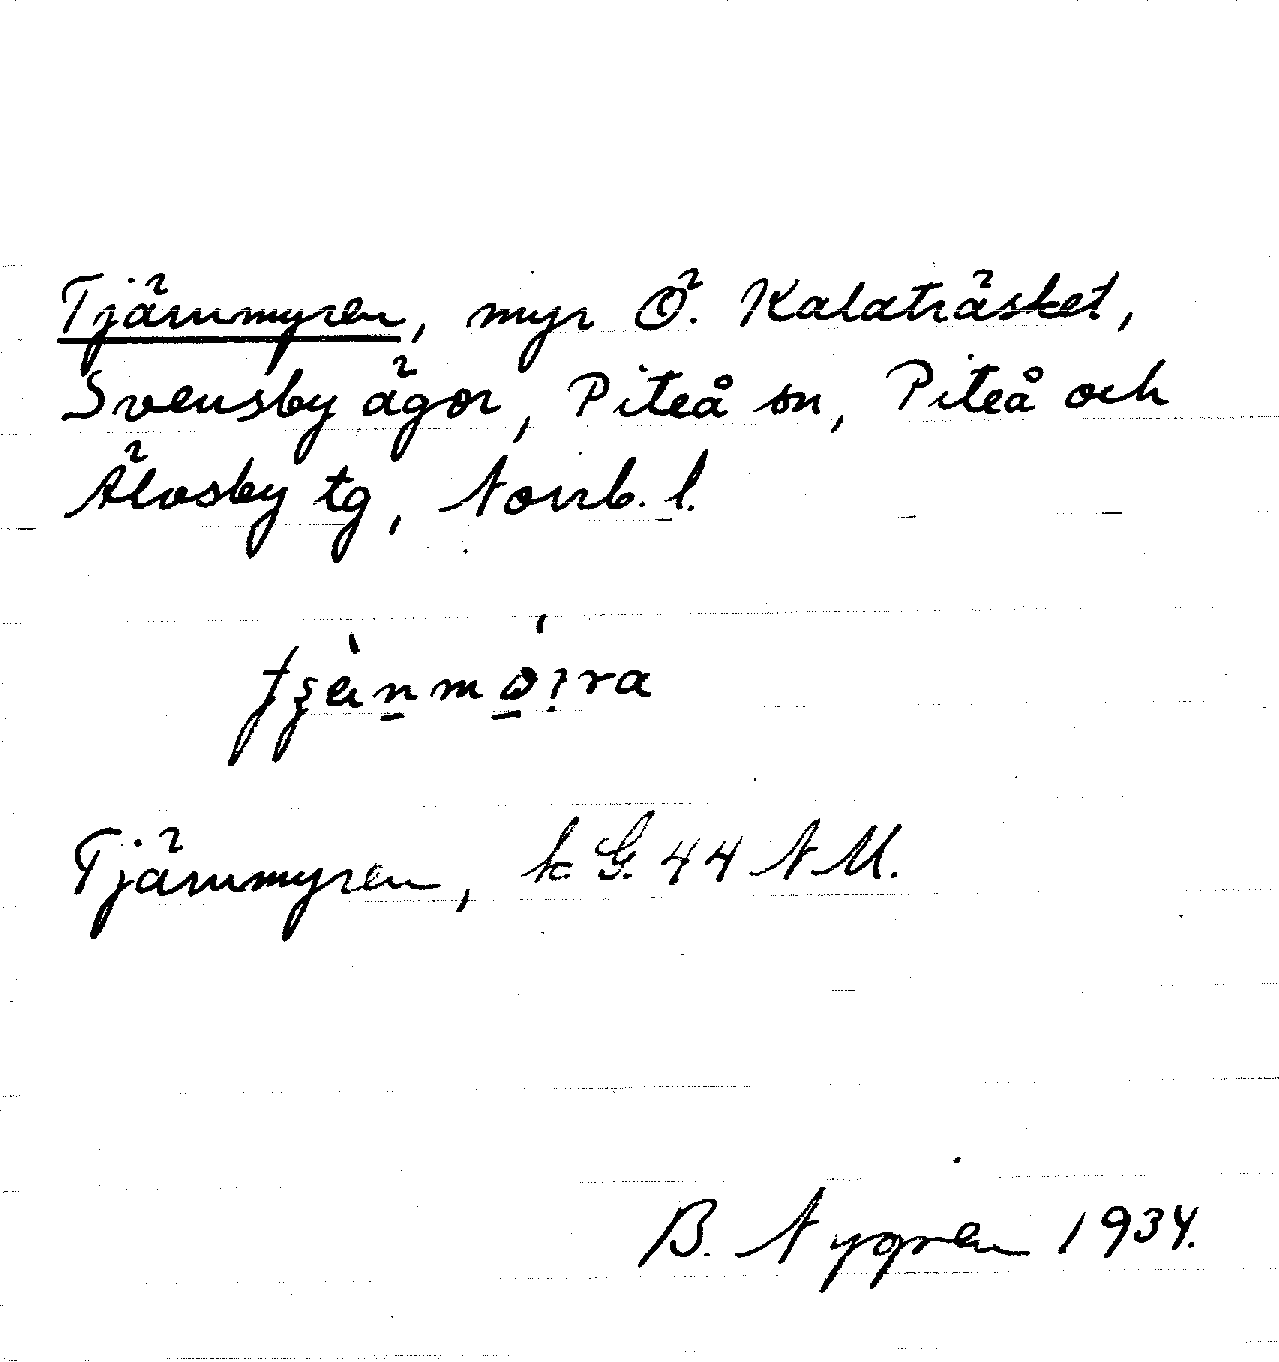 Tjärnmyren, myr Ö. Kalaträsket,
Svensby ägor, Piteå sn, Piteå och
Älvsby tg, Norrb. l.
Tjärnmyren, k G. 44 N M.
B. Nygren 1934.